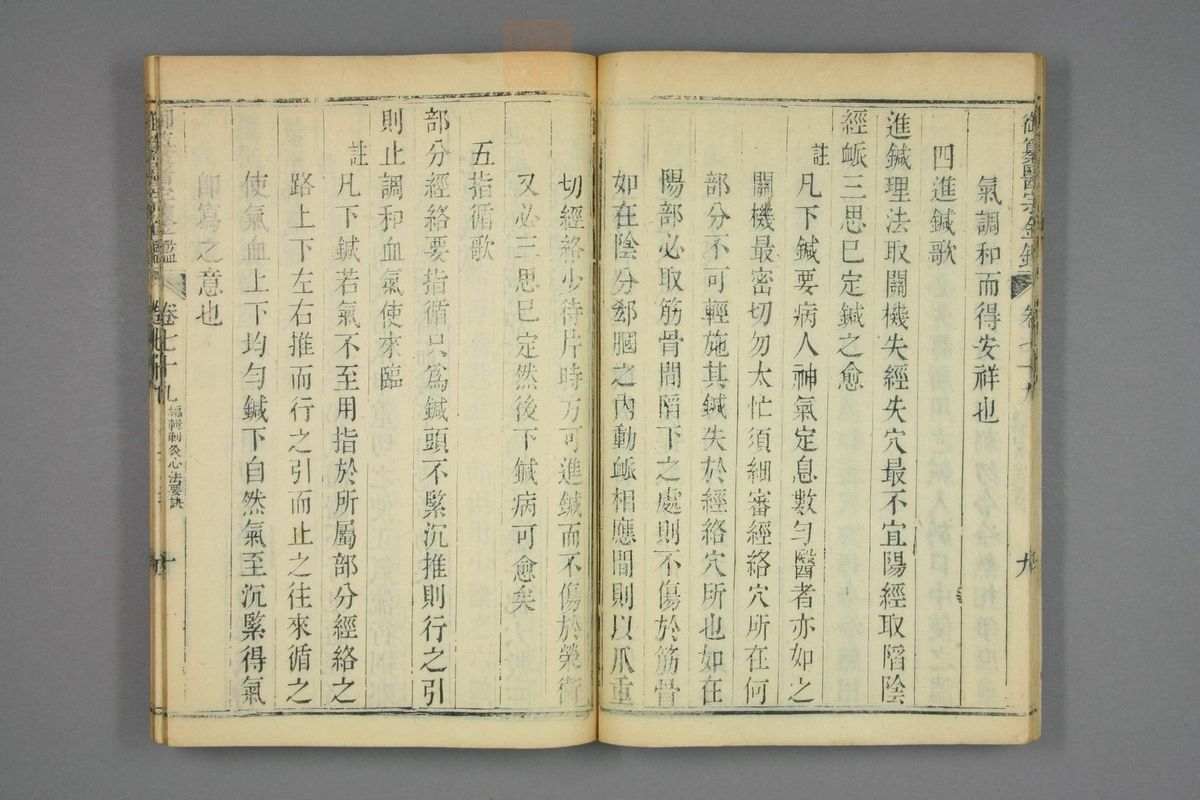 御纂醫宗金鑑 卷七十九 九
氣調和而得安祥也
四進鍼歌
進鍼理法取關機失經失穴最不宜陽經取陷陰
經衇三思巳定鍼之愈
註 凡下鍼要病人神氣定息數勻醫者亦如之
關機最密切勿太忙須細審經絡穴所在何
部分不可輕施其鍼失於經絡穴所也如在
陽部必取筋骨間陷下之處則不傷於筋骨
如在陰分郄膕之內動衇相應間則以爪重
切經絡少待片時方可進鍼而不傷於榮衛
又必三思巳定然後下鍼病可愈矣
五指循歌
部分經絡要指循只爲鍼頭不緊沉推則行之引
則止調和血氣使來臨
註 凡下鍼若氣不至用指於所屬部分經絡之
路上下左右推而行之引而止之往來循之
使氣血上下均勻鍼下自然氣至沉緊得氣
卽爲之意也
卷七十九 編輯刺灸心法要訣 十